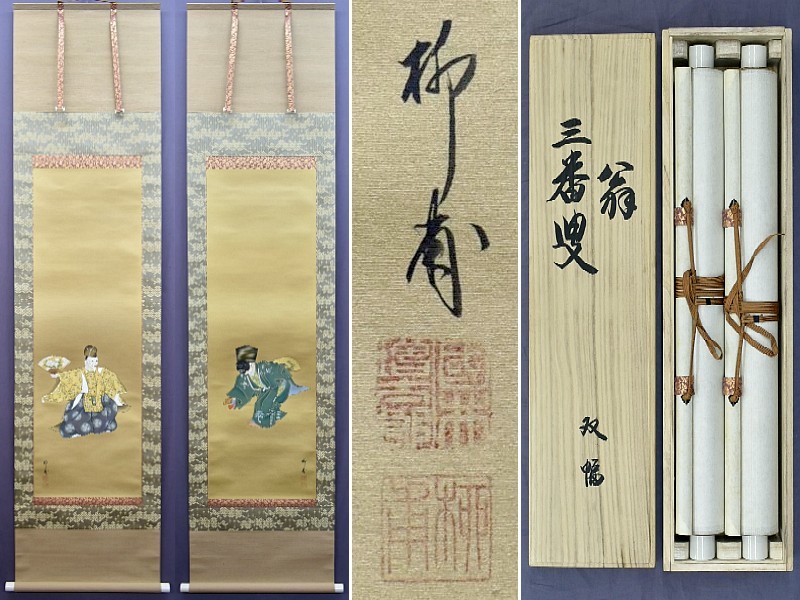 柳甫
柳甫
翁
三番叟
双幅